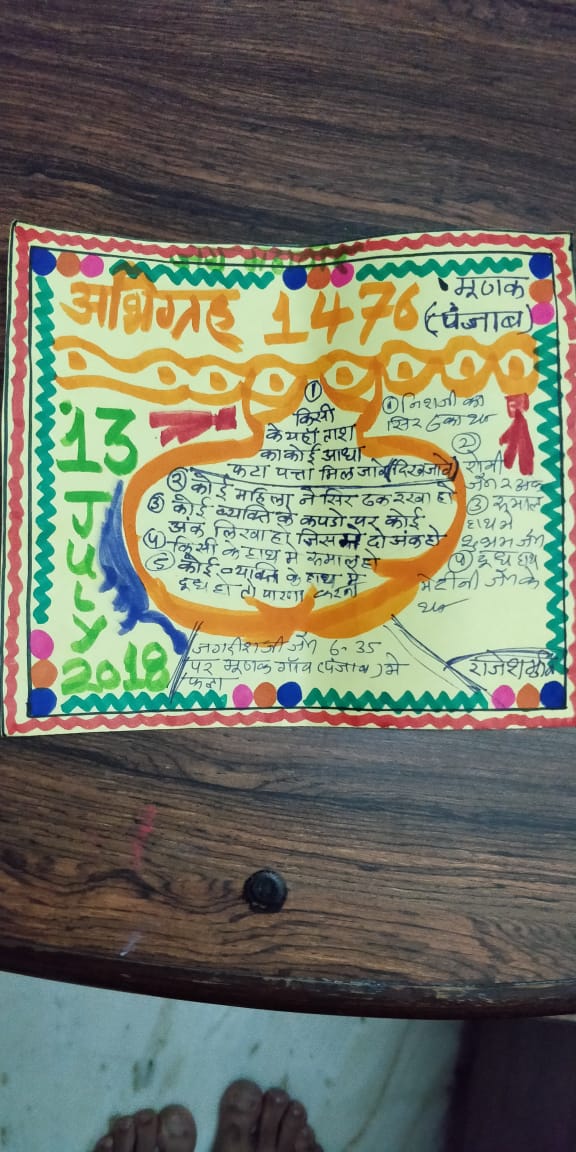 अभिग्रह 1476
मूणक
(पंजाब)
13
July
2018
①
किसी
के यहाँ ताश
का कोई आधा
फटा पत्ता मिल जावे (दिख जावे)
② कोई महिला ने सिर ढक रखा हो
③ कोई व्यक्ति के कपडो पर कोई
अंक लिखा हो जिसमे दो अंक हो
④ किसी के हाथ मे रूमाल हो
⑤ कोई व्यक्ति के हाथ मे
दूध हो तो पारणा करना
① निशाजी का
सिर ढका था
②
जैन २ अंक
③ रूमाल
हाथ मे
शुभम जैन
④ दूध हाथ
मे टीनी जैन के
था
जगदीशजी जैन 6.35
पर मूणक गाँव (पंजाब) मे
फला
राजेश मुनि